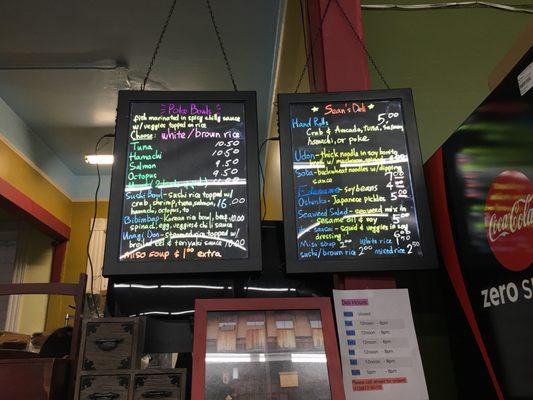 Poke Bowls
fish marinated in spicy chilly sauce
w/ veggies topped on rice
Choose: white/brown rice
Tuna 10.50
Hamachi 10.50
Salmon 9.50
Octopus 9.50
Sushi Bowl - sushi rice topped w/
crab, shrimp, tuna, salmon,
hamachi, octopus, 16.00
Bibimbap - Korean rice bowl, beef,
spinach, egg, veggies & chilli
sauce 10.00
Unagi Don - steamed rice topped w/
broiled eel & teriyaki sauce 10.00
Miso soup $1.00 extra
Sean's Deli
Hand Rolls 5.00
Crab & Avocado, Tuna, Salmon,
hamachi, or poke
Udon - thick noodle in soy broth
Soba - buckwheat noodles w/ dipping
sauce
Edamame - soybeans
Oshinko - Japanese pickles
Seaweed Salad - seaweed mix in
sesame oil & soy
squid & veggies in soy
dressing
Miso soup 2.00 white rice
sushi/brown rice 2.00 mixed rice
Deli Hours
closed
12noon - 8pm
12noon - 8pm
12noon - 8pm
12noon - 8pm
12noon - 8pm
Please call to order
Coca-Cola
zero